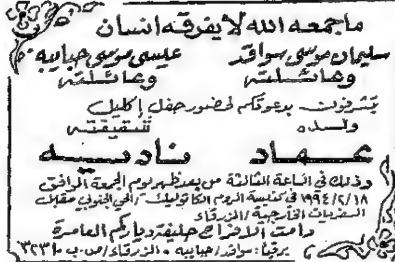 ما جمعه الله لا يفرقه انسان
سليمان موسى سوافد عيسى موسى حبايبه
وعائلته وعائلته
يتشرفون بدعوتكم لحضور حفل إكليل
ولده شقيقته
عماد ناديه
وذلك في الساعة الثالثة من بعد ظهر يوم الجمعة الموافق
١٩٩٤/٢/١٨ في كنيسة الروم الكاثوليك / الحي الجنوبي مقابل
السفريات الخارجية / الزرقاء
دامت الافراح حليفة دياركم العامرة
برقياً: سوافد / حبايبه ٠ الزرقاء / ص.ب ٣٢٣١٠